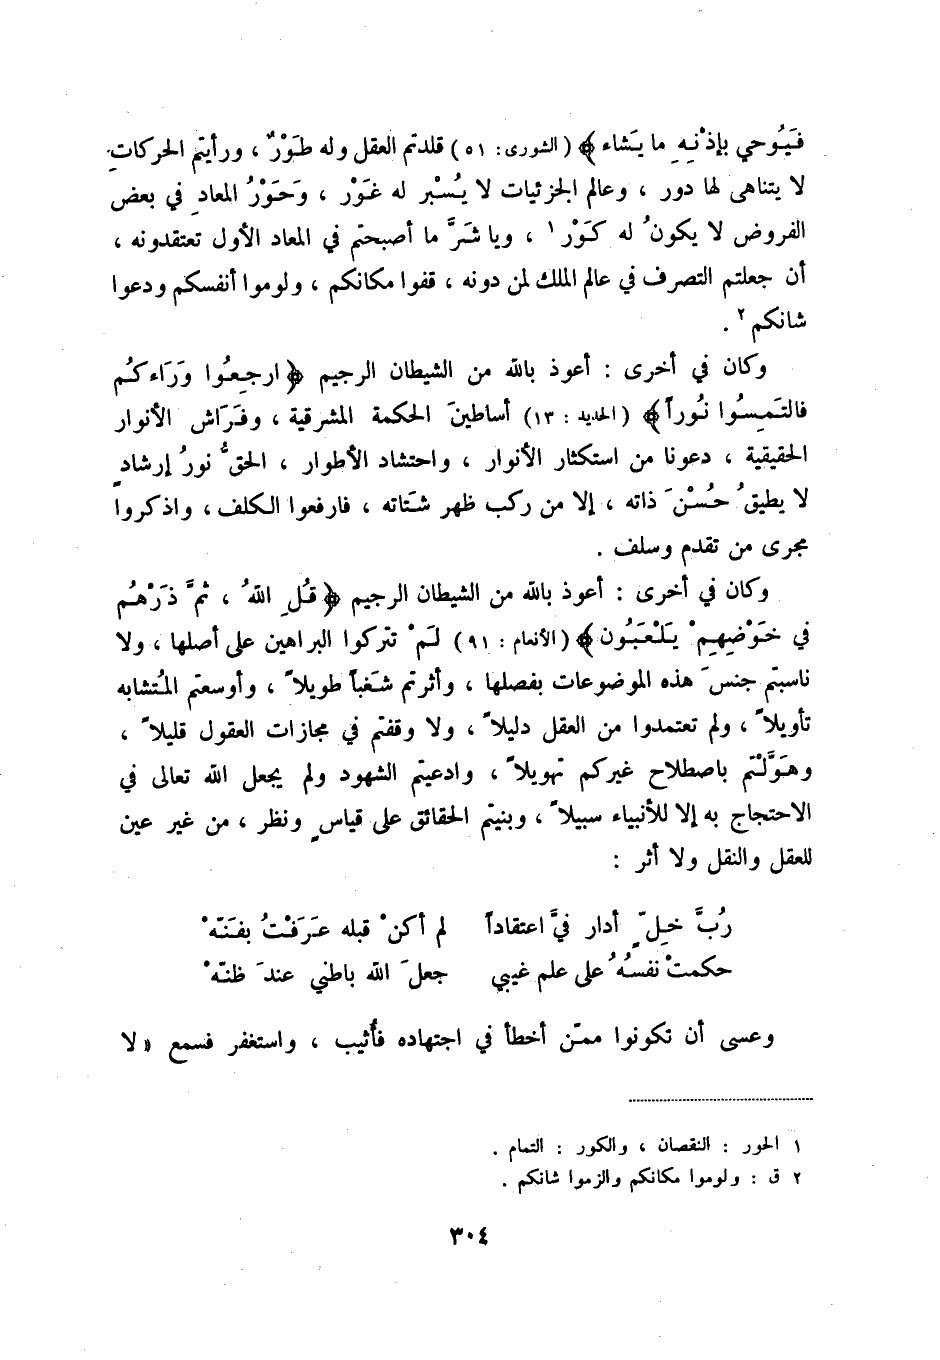 فَيُوحي بإذْنِهِ ما يَشاء﴾ (الشورى: ٥١) قلدتم العقل وله طَوْرٌ ، ورأيتم الحركاتِ
لا يتناهى لها دور ، وعالم الجزئيات لا يُسْبر له غَوْر ، وَحَوْرُ المعادِ في بعض
الفروض لا يكونُ له كَوْر ١ ، ويا شَرَّ ما أصبحتم في المعاد الأول تعتقدونه ،
أن جعلتم التصرف في عالم الملك لمن دونه ، قفوا مكانكم ، ولوموا أنفسكم ودعوا
شانكم ٢ .
وكان في أخرى : أعوذ بالله من الشيطان الرجيم ﴿ارجِعُوا وَرَاءكُم
فالتَمِسُوا نُوراً﴾ (الحديد : ١٣) أساطينَ الحكمة المشرقية ، وفَرَاش الأنوار
الحقيقية ، دعونا من استكثار الأنوار ، واحتشاد الأطوار ، الحقُّ نورُ إرشادٍ
لا يطيقُ حُسْنَ ذاته ، إلا من ركب ظهر شَتاته ، فارفعوا الكلف ، واذكروا
مجرى من تقدم وسلف .
وكان في أخرى : أعوذ بالله من الشيطان الرجيم ﴿قُلِ اللهُ ، ثمَّ ذَرْهُم
في خَوْضِهِمْ يَلْعَبُون﴾ (الأنعام : ٩١) لَمْ تتركوا البراهين على أصلها ، ولا
ناسبتم جنسَ هذه الموضوعات بفصلها ، وأثرتم شَغباً طويلاً ، وأوسعتم المُتشابه
تأويلاً ، ولم تعتمدوا من العقل دليلاً ، ولا وقفتم في مجازات العقول قليلاً ،
وهَوَّلْتم باصطلاح غيركم تهويلاً ، وادعيتم الشهود ولم يجعل الله تعالى في
الاحتجاج به إلا للأنبياء سبيلاً ، وبنيتم الحقائق على قياسٍ ونظر ، من غير عين
للعقل والنقل ولا أثر :
رُبَّ خِلٍّ أدار فيَّ اعتقاداً لم أكنْ قبله عَرَفْتُ بفَنّهْ
حكمتْ نفسُهُ على علم غيبي جعلَ الله باطني عندَ ظنّهْ
وعسى أن تكونوا ممّن أخطأ في اجتهاده فأُثيب ، واستغفر فسمع « لا
١ الحور : النقصان ، والكور : التمام .
٢ ق : ولوموا مكانكم والزموا شانكم .
٣٠٤